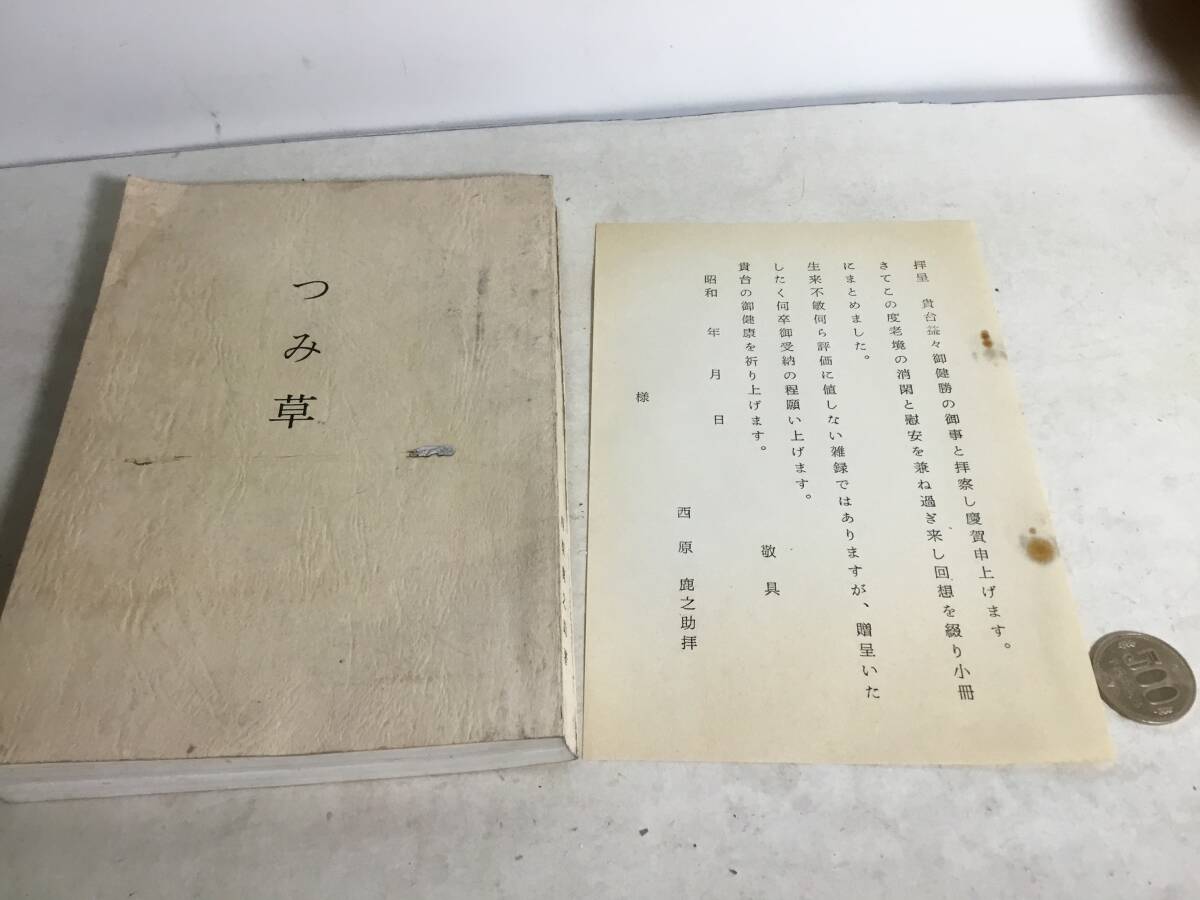 つみ草
拝呈　貴台益々御健勝の御事と拝察し慶賀申上げます。
さてこの度老境の消閑と慰安を兼ね過ぎ来し回想を綴り小冊
にまとめました。
生来不敏何ら評価に値しない雑録ではありますが、贈呈いた
したく何卒御受納の程願い上げます。
貴台の御健康を祈り上げます。　敬具
昭和　年　月　日
西原鹿之助拝
様
500